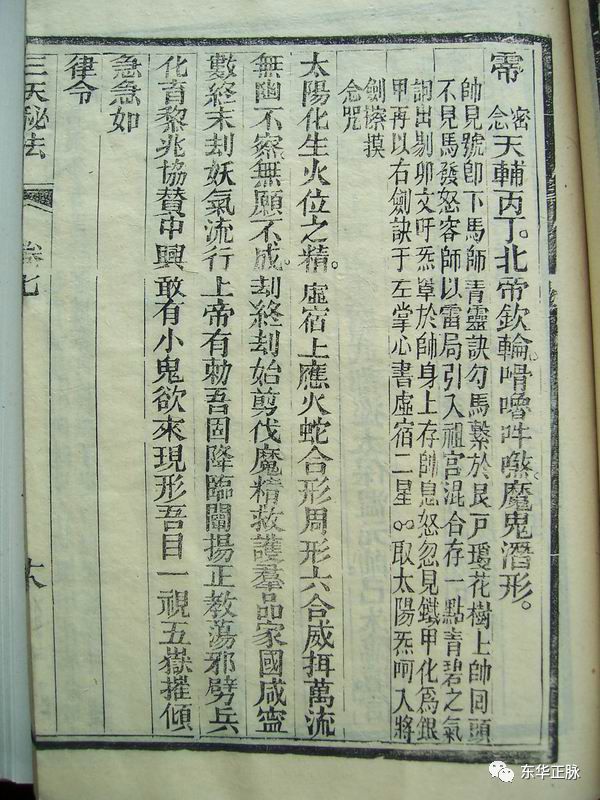 密念 天輔丙丁。北帝欽輪。嚕吽魔鬼潛形。
帥見號卽下馬師青靈訣勾馬繫於艮戸瓊花樹上帥回頭
不見馬發怒容師以雷局引入祖宫混合存一點青碧之氣
調出剔卯文吁炁罩於帥身上存帥息怒忽見鐵甲化爲銀
甲再以右劍訣于左掌心書虛宿二星取太陽炁呵入將
劍擦摸
念咒
太陽化生火位之精。虛宿上應火蛇合形周形六合威揖萬流
無幽不察無願不成。刦終刦始剪伐魔精救護羣品家國咸寧
數終末刦妖氣流行上帝有勅吾固降臨闡揚正教蕩邪劈兵
化育黎兆協賛中興敢有小鬼欲來現形吾目一視五嶽摧傾
急急如
律令
三天秘法 卷七
东华正脉